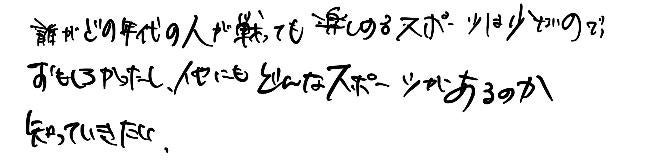 誰がどの年代の人が戦っても楽しめるスポーツは少ないので
おもしろかったし、他にもどんなスポーツがあるのか
知っていきたい、